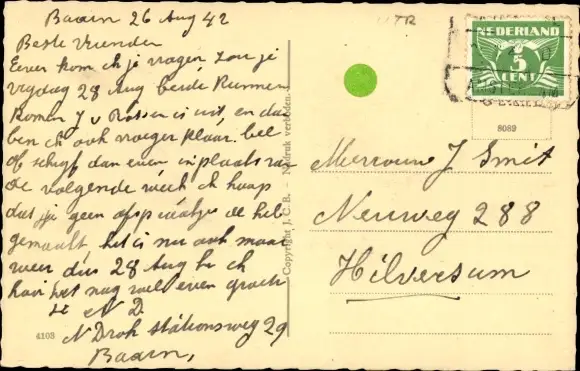 Baarn 26 Aug 42
Beste Vrienden
Even kom ik je vragen, zou je
vrijdag 28 Aug beide kunnen
komen J v Rossen is uit, en dan
ben ik ook vroeger klaar. bel
of schrijf dan even in plaats van
de volgende week ik hoop
dat je geen afspraakje de heb
gemaakt, het is nu ook maar
weer dus 28 Aug
het nog wel even
N D.
N Drok stationsweg 29
Baarn,
4103
Copyright J. C. B. - Nadruk verboden
UTR
NEDERLAND
5
CENT
8089
Mevrouw J Smit
Neuweg 288
Hilversum